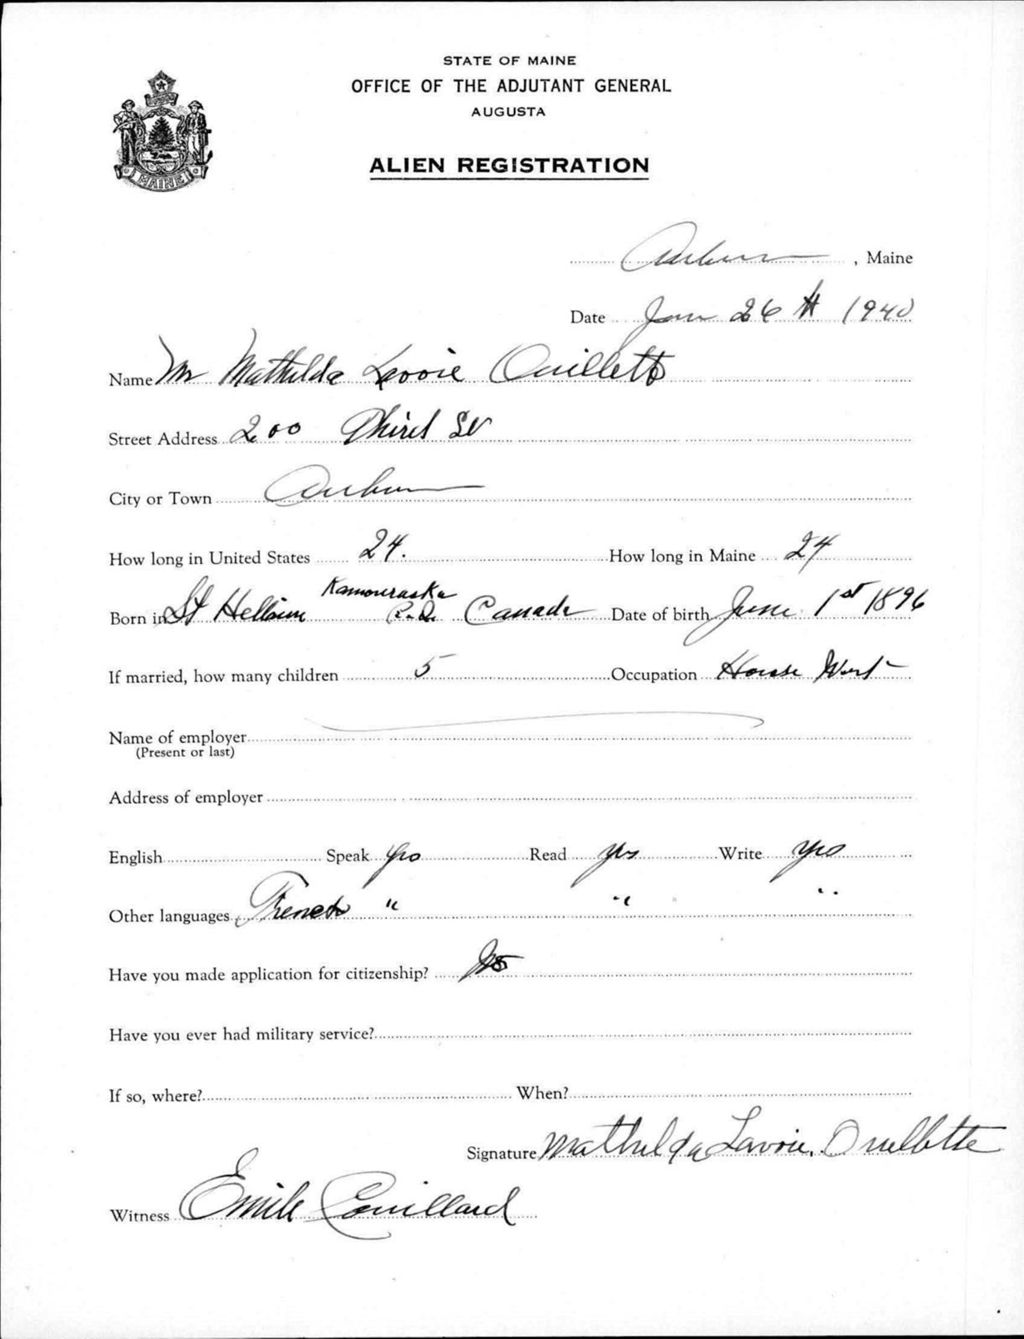 STATE OF MAINE
OFFICE OF THE ADJUTANT GENERAL
AUGUSTA
ALIEN REGISTRATION
MAINE
Auburn, Maine
Date Jan 26th 1940
Name Mr Mathilda Lavoie Ouillette
Street Address 200 Third St
City or Town Auburn
How long in United States 24. How long in Maine 24
Kamouraska
Born in St Helleine P.Q. Canada Date of birth June 1st 1896
If married, how many children 5 Occupation House Work
Name of employer
(Present or last)
Address of employer
English Speak yes Read yes Write yes
Other languages French " " "
Have you made application for citizenship? No
Have you ever had military service?
If so, where? When?
Signature Mathilda Lavoie Ouellette
Witness Emile Couillard